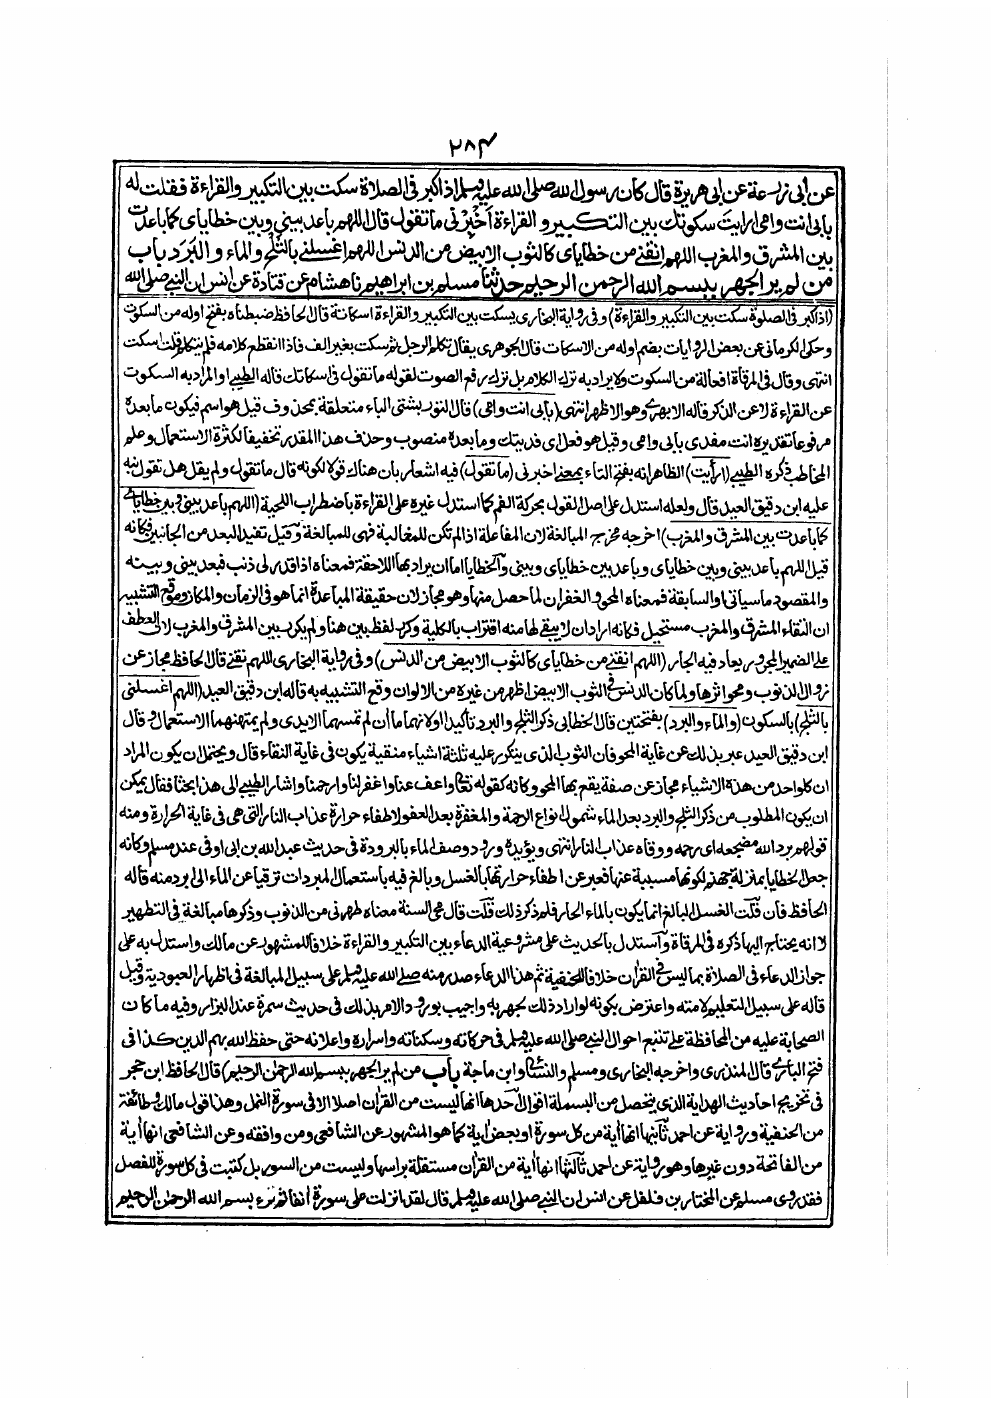 ٢٨٤
عن ابى زرعة عن ابى هريرة قال كان رسول الله صلى الله عليه وسلم اذا كبر فى الصلاة سكت بين التكبير والقراءة فقلت له
بابى انت وامى ارايت سكوتك بين التكبير و القراءة أخبرنى ما تقول قال اللهم باعد بينى وبين خطاياى كما باعدت
بين المشرق والمغرب اللهم انقنى من خطاياى كالثوب الابيض من الدنس اللهم اغسلنى بالثلج والماء و البَرَد باب
من لم ير الجهر ببسم الله الرحمن الرحيم حدثنا مسلم بن ابراهيم نا هشام عن قتادة عن انس ان النبى صلى الله
(اذا كبر فى الصلوة سكت بين التكبير والقراءة) وفى رواية البخارى يسكت بين التكبير والقراءة اسكاتة قال الحافظ ضبطناه بفتح اوله من السكوت
وحكى الكرمانى عن بعض الروايات بضم اوله من الاسكات قال الجوهرى يقال تكلم الرجل ثم سكت بغير الف فاذا انقطع كلامه فلم يتكلم قلت اسكت
انتهى وقال فى المرقاة افعالة من السكوت ولا يراد به ترك الكلام بل ترك رفع الصوت لقوله ما تقول فى اسكاتك قاله الطيبى او المراد به السكوت
عن القراءة لا عن الذكر قاله الابهرى وهو الاظهر انتهى (بابى انت وامى) قال التوربشتى الباء متعلقة بمحذوف قيل هو اسم فيكون ما بعده
مرفوعا تقديره انت مفدى بابى وامى وقيل هو فعل اى فديتك وما بعده منصوب وحذف هذا المقدر تخفيفا لكثرة الاستعمال وعلم
المخاطب ذكره الطيبى (ارأيت) الظاهر انه بفتح التاء بمعنى اخبرنى (ما تقول) فيه اشعار بان هناك قولا لكونه قال ما تقول ولم يقل هل تقول نبه
عليه ابن دقيق العيد قال ولعله استدل على اصل القول بحركة الفم كما استدل غيره على القراءة باضطراب اللحية (اللهم باعد بينى وبين خطاياى
كما باعدت بين المشرق والمغرب) اخرجه مخرج المبالغة لان المفاعلة اذا لم تكن للمغالبة فهى للمبالغة وقيل تفيد البعد من الجانبين فكانه
قيل اللهم باعد بينى وبين خطاياى وباعد بين خطاياى وبينى والخطايا اما ان يراد بها اللاحقة فمعناه اذا قدر لى ذنب فبعد بينى وبينه
والمقصود ما سياتى او السابقة فمعناه المحو والغفران لما حصل منها وهو مجاز لان حقيقة المباعدة انما هو فى الزمان والمكان وموقع التشبيه
ان التقاء المشرق والمغرب مستحيل فكانه اراد ان لا يبقى لها منه اقتراب بالكلية وكرر لفظ بين هنا ولم يكرر بين المشرق والمغرب لان العطف
على الضمير المجرور يعاد فيه الجار (اللهم انقنى من خطاياى كالثوب الابيض من الدنس) وفى رواية البخارى اللهم نقنى قال الحافظ مجاز عن
زوال الذنوب ومحو اثرها ولما كان الدنس فى الثوب الابيض اظهر من غيره من الالوان وقع التشبيه به قاله ابن دقيق العيد (اللهم اغسلنى
بالثلج) بالسكون (والماء والبرد) بفتحتين قال الخطابى ذكر الثلج والبرد تأكيدا او لانهما ماءان لم تمسهما الايدى ولم يمتهنهما الاستعمال وقال
ابن دقيق العيد عبر بذلك عن غاية المحو فان الثوب الذى يتكرر عليه ثلثة اشياء منقية يكون فى غاية النقاء قال ويحتمل ان يكون المراد
ان كل واحد من هذه الاشياء مجاز عن صفة يقع بها المحو وكانه كقوله تعالى واعف عنا واغفر لنا وارحمنا واشار الطيبى الى هذا بحثا فقال يمكن
ان يكون المطلوب من ذكر الثلج والبرد بعد الماء شمول انواع الرحمة والمغفرة بعد العفو لاطفاء حرارة عذاب النار التى هى فى غاية الحرارة ومنه
قولهم برد الله مضجعه اى رحمه ووقاه عذاب النار انتهى ويؤيده ورود وصف الماء بالبرودة فى حديث عبد الله بن ابى اوفى عند مسلم وكانه
جعل الخطايا بمنزلة جهنم لكونها مسببة عنها فعبر عن اطفاء حرارتها بالغسل وبالغ فيه باستعمال المبردات ترقيا عن الماء الى ابرد منه قاله
الحافظ فان قلت الغسل البالغ انما يكون بالماء الحار فلم ذكر ذلك قلت قال محى السنة معناه طهرنى من الذنوب وذكرها مبالغة فى التطهير
لا انه يحتاج اليها ذكره فى المرقاة واستدل بالحديث على مشروعية الدعاء بين التكبير والقراءة خلافا للمشهور عن مالك واستدل به على
جواز الدعاء فى الصلاة بما ليس فى القرآن خلافا للحنفية ثم هذا الدعاء صدر منه صلى الله عليه وسلم على سبيل المبالغة فى اظهار العبودية وقيل
قاله على سبيل التعليم لامته واعترض بكونه لو اراد ذلك لجهر به واجيب بورود الامر بذلك فى حديث سمرة عند البزار وفيه ما كان
الصحابة عليه من المحافظة على تتبع احوال النبى صلى الله عليه وسلم فى حركاته وسكناته واسراره واعلانه حتى حفظ الله بهم الدين كذا فى
فتح البارى قال المنذرى واخرجه البخارى ومسلم والنسائى وابن ماجة باب من لم ير الجهر ببسم الله الرحمن الرحيم) قال الحافظ ابن حجر
فى تخريج احاديث الهداية الذى يتحصل من البسملة اقوال احدها انها ليست من القرآن اصلا الا فى سورة النمل وهذا قول مالك وطائفة
من الحنفية ورواية عن احمد ثانيها انها أية من كل سورة او بعض أية كما هو المشهور عن الشافعى ومن وافقه وعن الشافعى انها أية
من الفاتحة دون غيرها وهو رواية عن احمد ثالثها انها أية من القرآن مستقلة براسها وليست من السور بل كتبت فى كل سورة للفصل
فقد روى مسلم عن المختار بن فلفل عن انس ان النبى صلى الله عليه وسلم قال لقد انزلت على سورة أنفا ثم قرء بسم الله الرحمن الرحيم